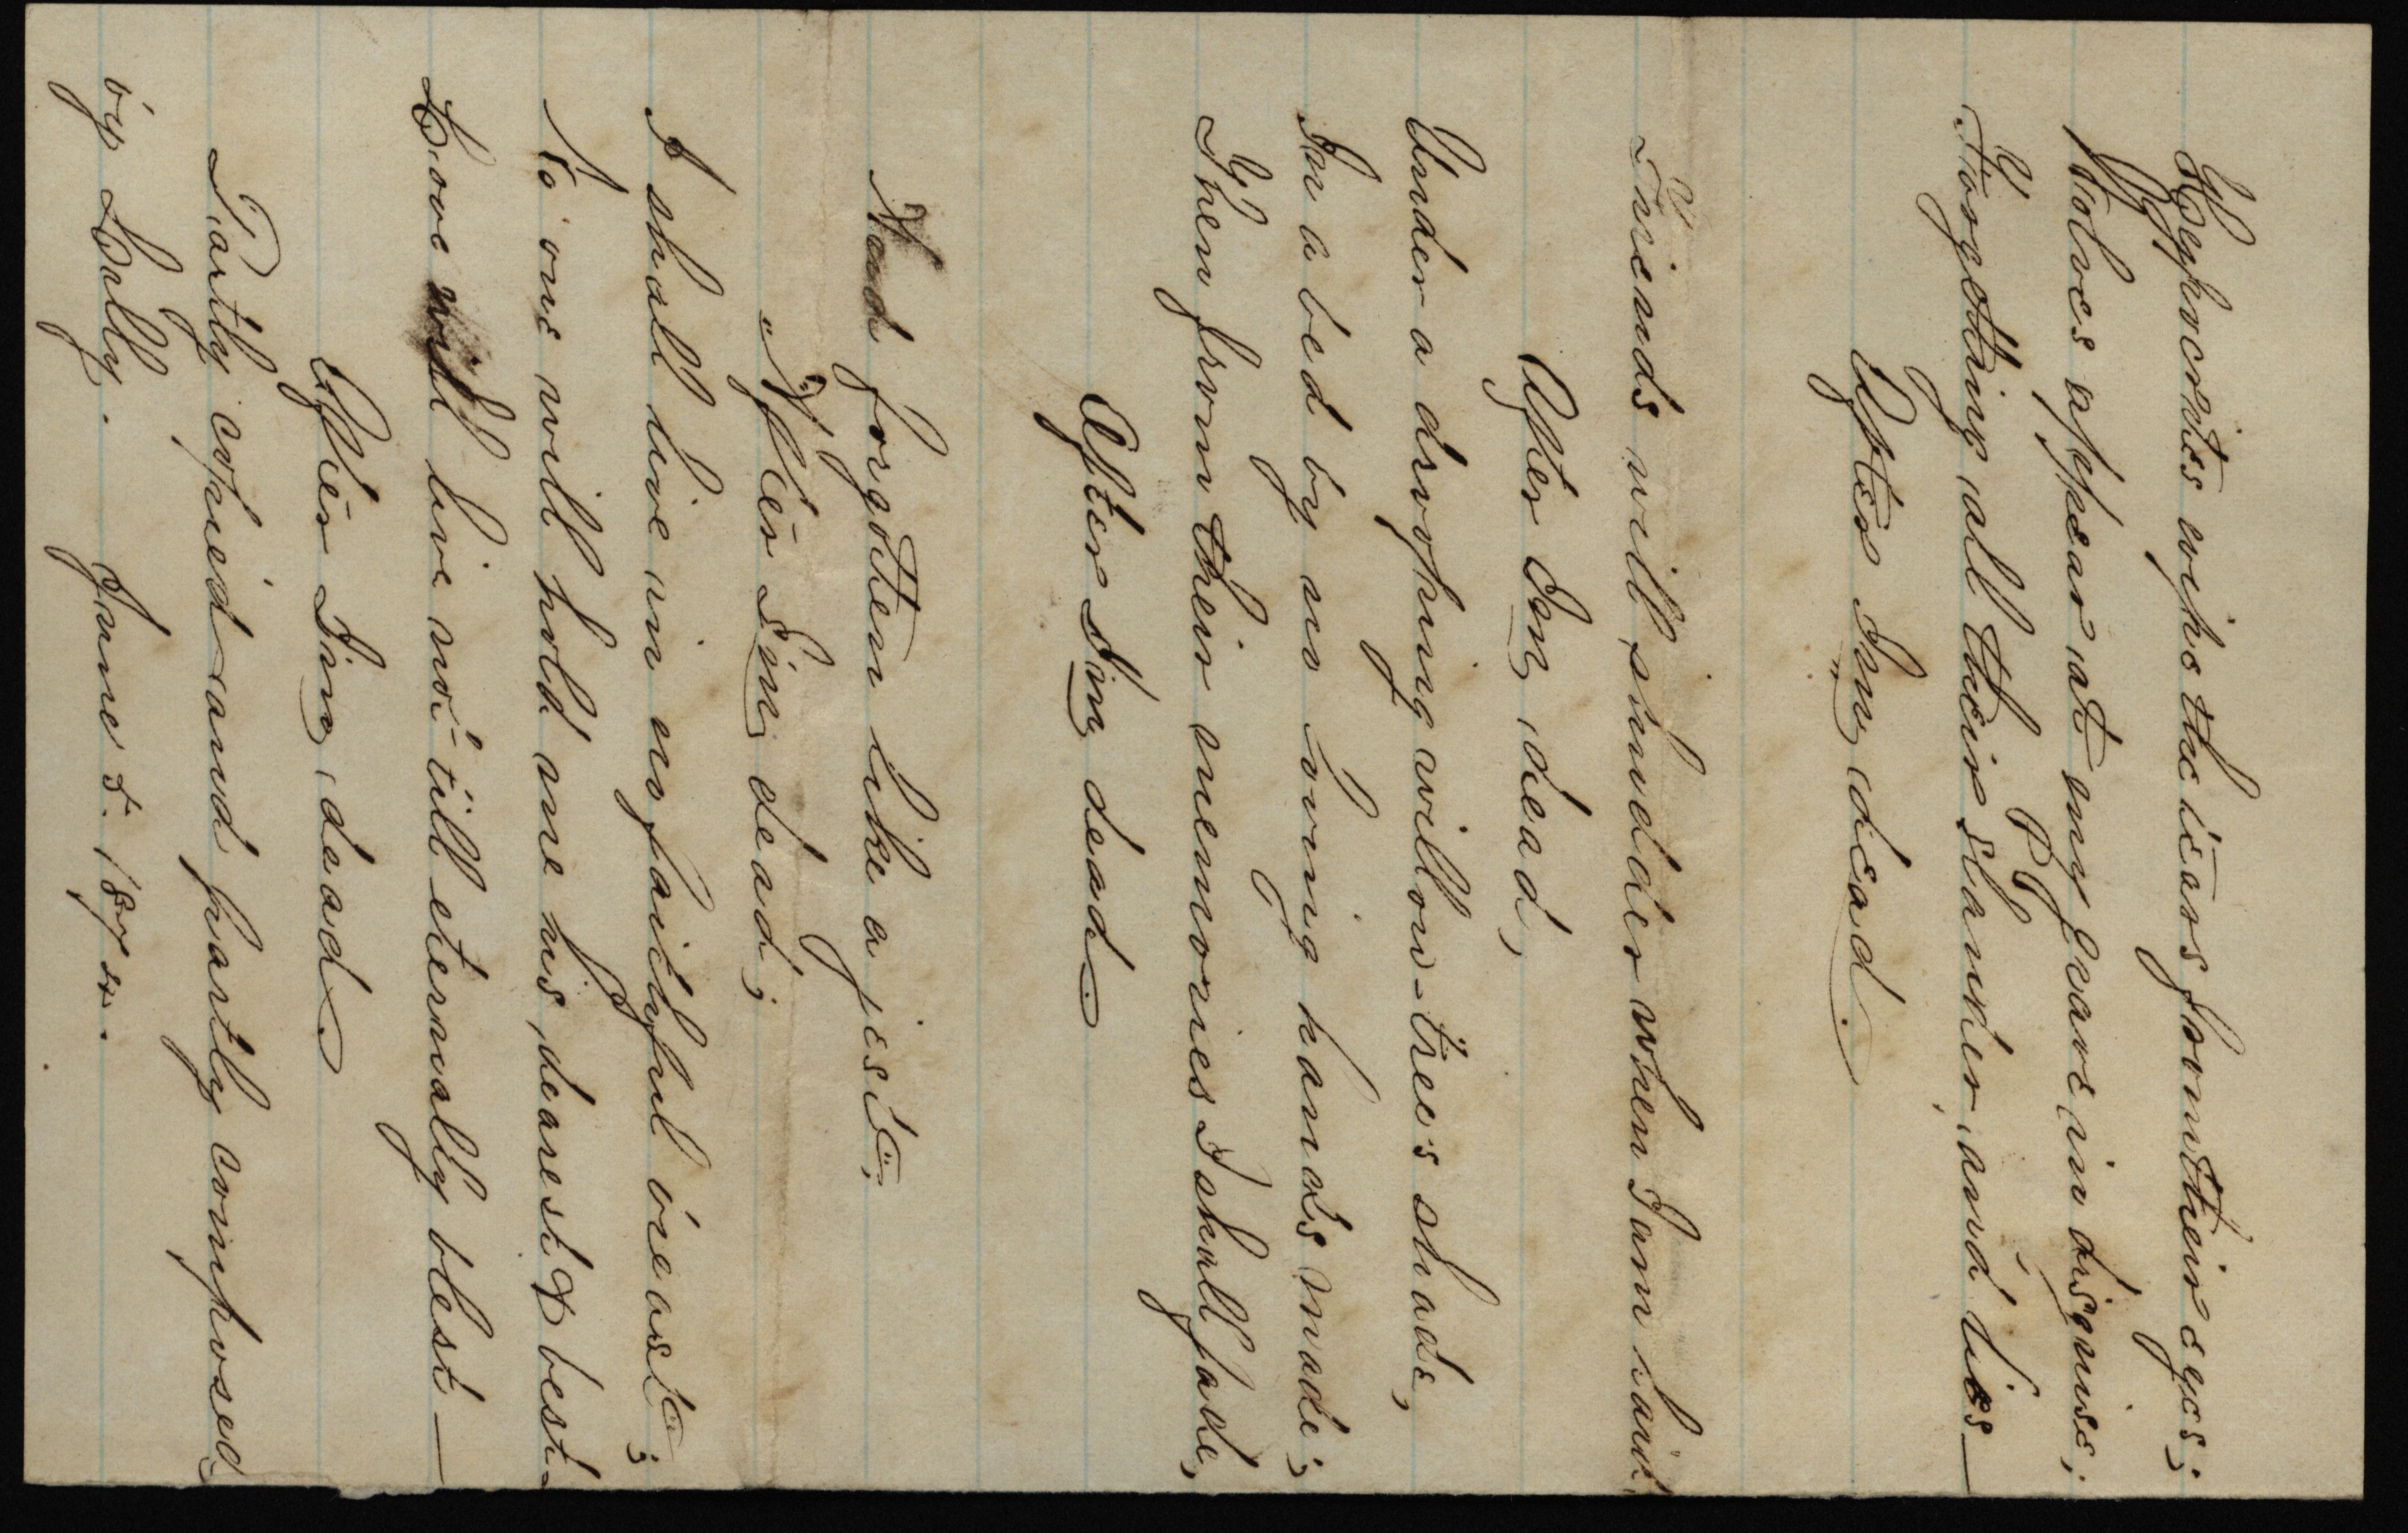 Hypocrites wipe the tears from their eyes;
Wolves appear at my grave in disguise;
Forgetting all their slander, and lies—
After I'm dead.
Friends will shudder when I am laid
After I'm dead,
Under a drooping willow-tree's shade,
In a bed by no loving hands made;
Then from their memories I shall fade,
After I'm dead.
And forgotten like a jest,
After I'm dead;
I shall live in no faithful breast;
No one will hold me his dearest & best—
Love will live not till eternally blest—
After I'm dead.
Partly copied and partly composed
by Lally. June 5.